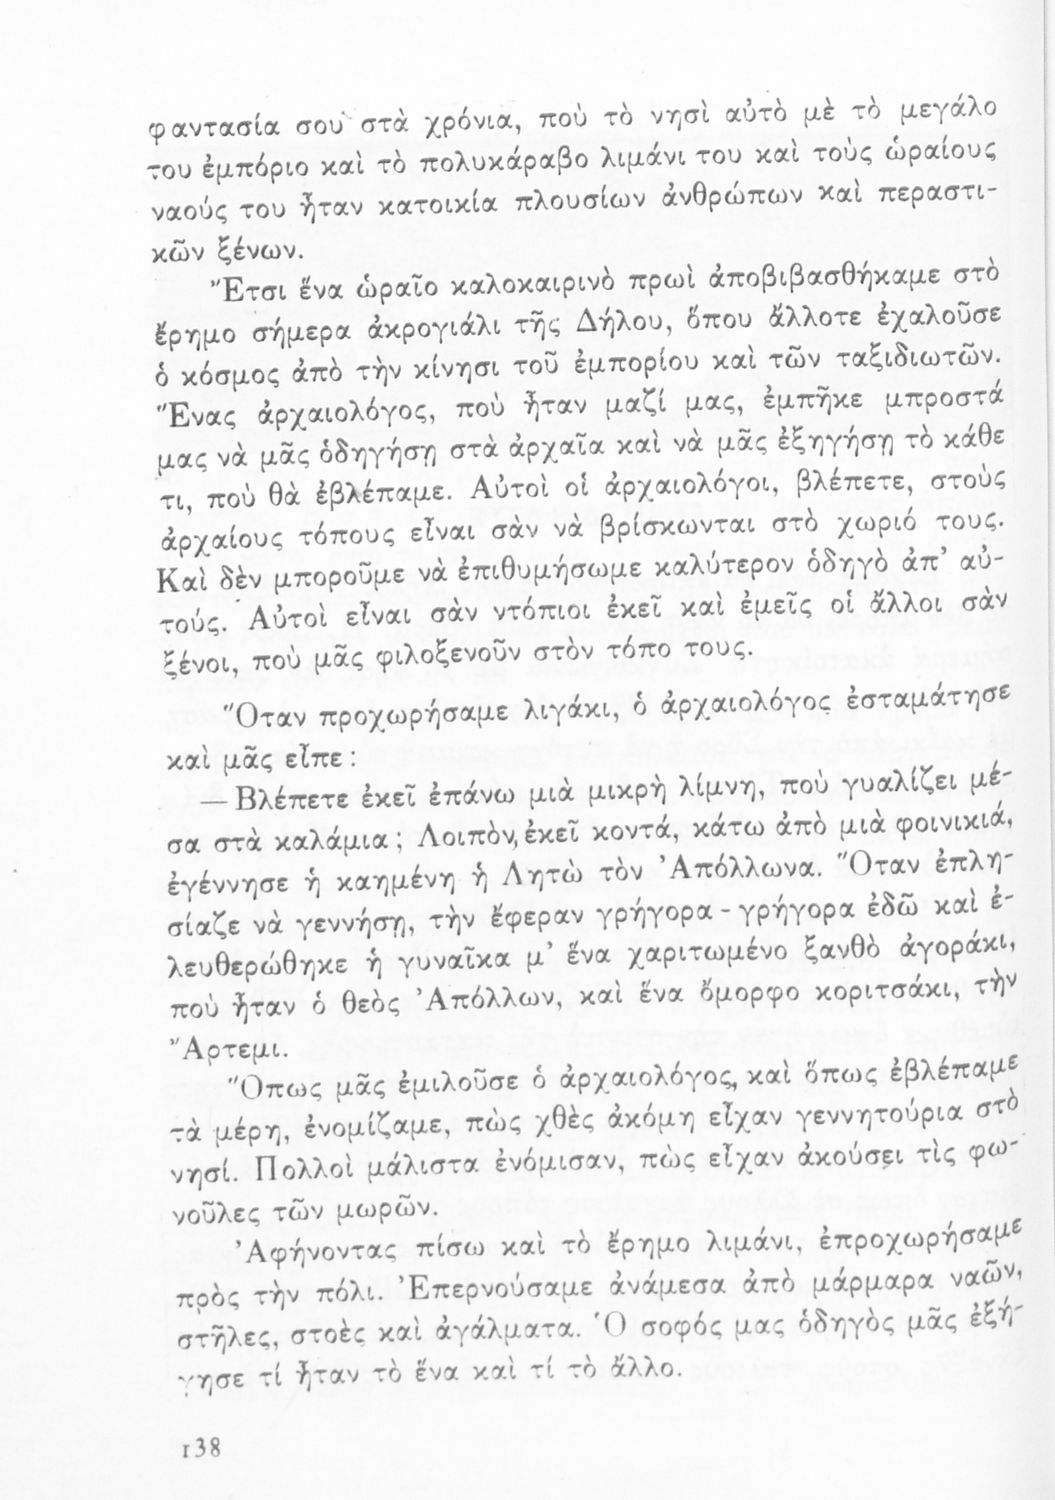 φαντασία σου στὰ χρόνια, ποὺ τὸ νησὶ αὐτὸ μὲ τὸ μεγάλο
του ἐμπόριο καὶ τὸ πολυκάραβο λιμάνι του καὶ τοὺς ὡραίους
ναούς του ἦταν κατοικία πλουσίων ἀνθρώπων καὶ περαστι-
κῶν ξένων.
Ἔτσι ἕνα ὡραῖο καλοκαιρινὸ πρωὶ ἀποβιβασθήκαμε στὸ
ἔρημο σήμερα ἀκρογιάλι τῆς Δήλου, ὅπου ἄλλοτε ἐχαλοῦσε
ὁ κόσμος ἀπὸ τὴν κίνησι τοῦ ἐμπορίου καὶ τῶν ταξιδιωτῶν.
Ἕνας ἀρχαιολόγος, ποὺ ἦταν μαζί μας, ἐμπῆκε μπροστά
μας νὰ μᾶς ὁδηγήσῃ στὰ ἀρχαῖα καὶ νὰ μᾶς ἐξηγήσῃ τὸ κάθε
τι, ποὺ θὰ ἐβλέπαμε. Αὐτοὶ οἱ ἀρχαιολόγοι, βλέπετε, στοὺς
ἀρχαίους τόπους εἶναι σὰν νὰ βρίσκωνται στὸ χωριό τους.
Καὶ δὲν μποροῦμε νὰ ἐπιθυμήσωμε καλύτερον ὁδηγὸ ἀπ’ αὐ-
τούς. Αὐτοὶ εἶναι σὰν ντόπιοι ἐκεῖ καὶ ἐμεῖς οἱ ἄλλοι σὰν
ξένοι, ποὺ μᾶς φιλοξενοῦν στὸν τόπο τους.
Ὅταν προχωρήσαμε λιγάκι, ὁ ἀρχαιολόγος ἐσταμάτησε
καὶ μᾶς εἶπε :
— Βλέπετε ἐκεῖ ἐπάνω μιὰ μικρὴ λίμνη, ποὺ γυαλίζει μέ-
σα στὰ καλάμια ; Λοιπὸν, ἐκεῖ κοντά, κάτω ἀπὸ μιὰ φοινικιά,
ἐγέννησε ἡ καημένη ἡ Λητὼ τὸν Ἀπόλλωνα. Ὅταν ἐπλη-
σίαζε νὰ γεννήσῃ, τὴν ἔφεραν γρήγορα - γρήγορα ἐδῶ καὶ ἐ-
λευθερώθηκε ἡ γυναῖκα μ’ ἕνα χαριτωμένο ξανθὸ ἀγοράκι,
ποὺ ἦταν ὁ θεὸς Ἀπόλλων, καὶ ἕνα ὄμορφο κοριτσάκι, τὴν
Ἄρτεμι.
Ὅπως μᾶς ἐμιλοῦσε ὁ ἀρχαιολόγος, καὶ ὅπως ἐβλέπαμε
τὰ μέρη, ἐνομίζαμε, πὼς χθὲς ἀκόμη εἶχαν γεννητούρια στὸ
νησί. Πολλοὶ μάλιστα ἐνόμισαν, πὼς εἶχαν ἀκούσει τὶς φω-
νοῦλες τῶν μωρῶν.
Ἀφήνοντας πίσω καὶ τὸ ἔρημο λιμάνι, ἐπροχωρήσαμε
πρὸς τὴν πόλι. Ἐπερνούσαμε ἀνάμεσα ἀπὸ μάρμαρα ναῶν,
στῆλες, στοὲς καὶ ἀγάλματα. Ὁ σοφός μας ὁδηγὸς μᾶς ἐξή-
γησε τί ἦταν τὸ ἕνα καὶ τί τὸ ἄλλο.
138